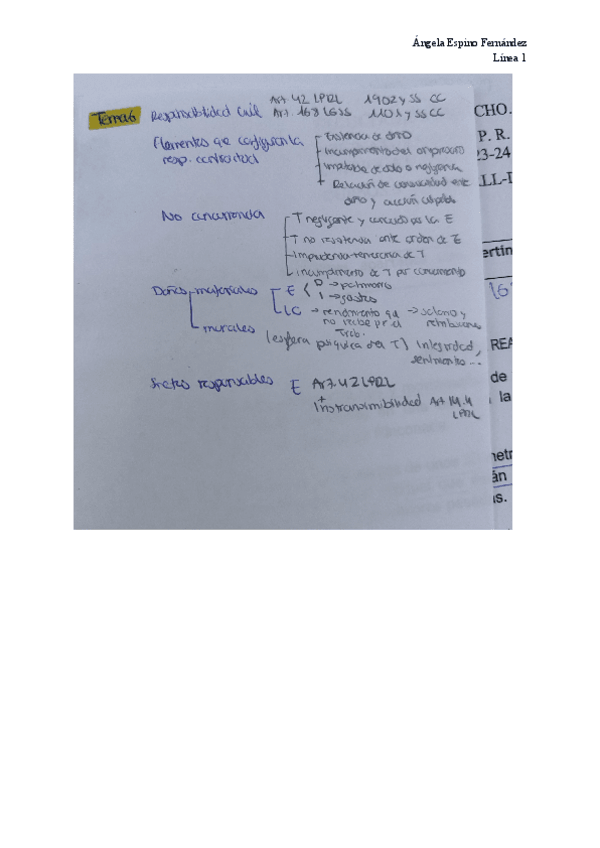 Ángela Espino Fernández
Línea 1
Tema 6 Responsabilidad Civil Art. 42 LPRL 1902 y ss CC
Art. 168 LGSS 1101 y ss CC
Elementos que configuran la
resp. contractual
Existencia de daño
Incumplimiento del empresario
Imputable de dolo o negligencia
Relación de causalidad entre
daño y acción culpable
No concurrencia
T negligente y consentido por la E
T no resistencia ante orden de E
Imprudencia temeraria de T
Incumplimiento de T por consentimiento
Daños materiales E D → patrimonio
I → gastos
LC → rendimiento que → salario y
no recibe por el retribuciones
Trab.
morales (esfera psíquica del T) Integridad,
sentimientos...
Sujetos responsables E Art. 42 LPRL
+
Instransmibilidad Art 14.4
LPRL
CHO.
P. R.
23-24
ALL-D
ertin
REA
de
la
metr
án
as.